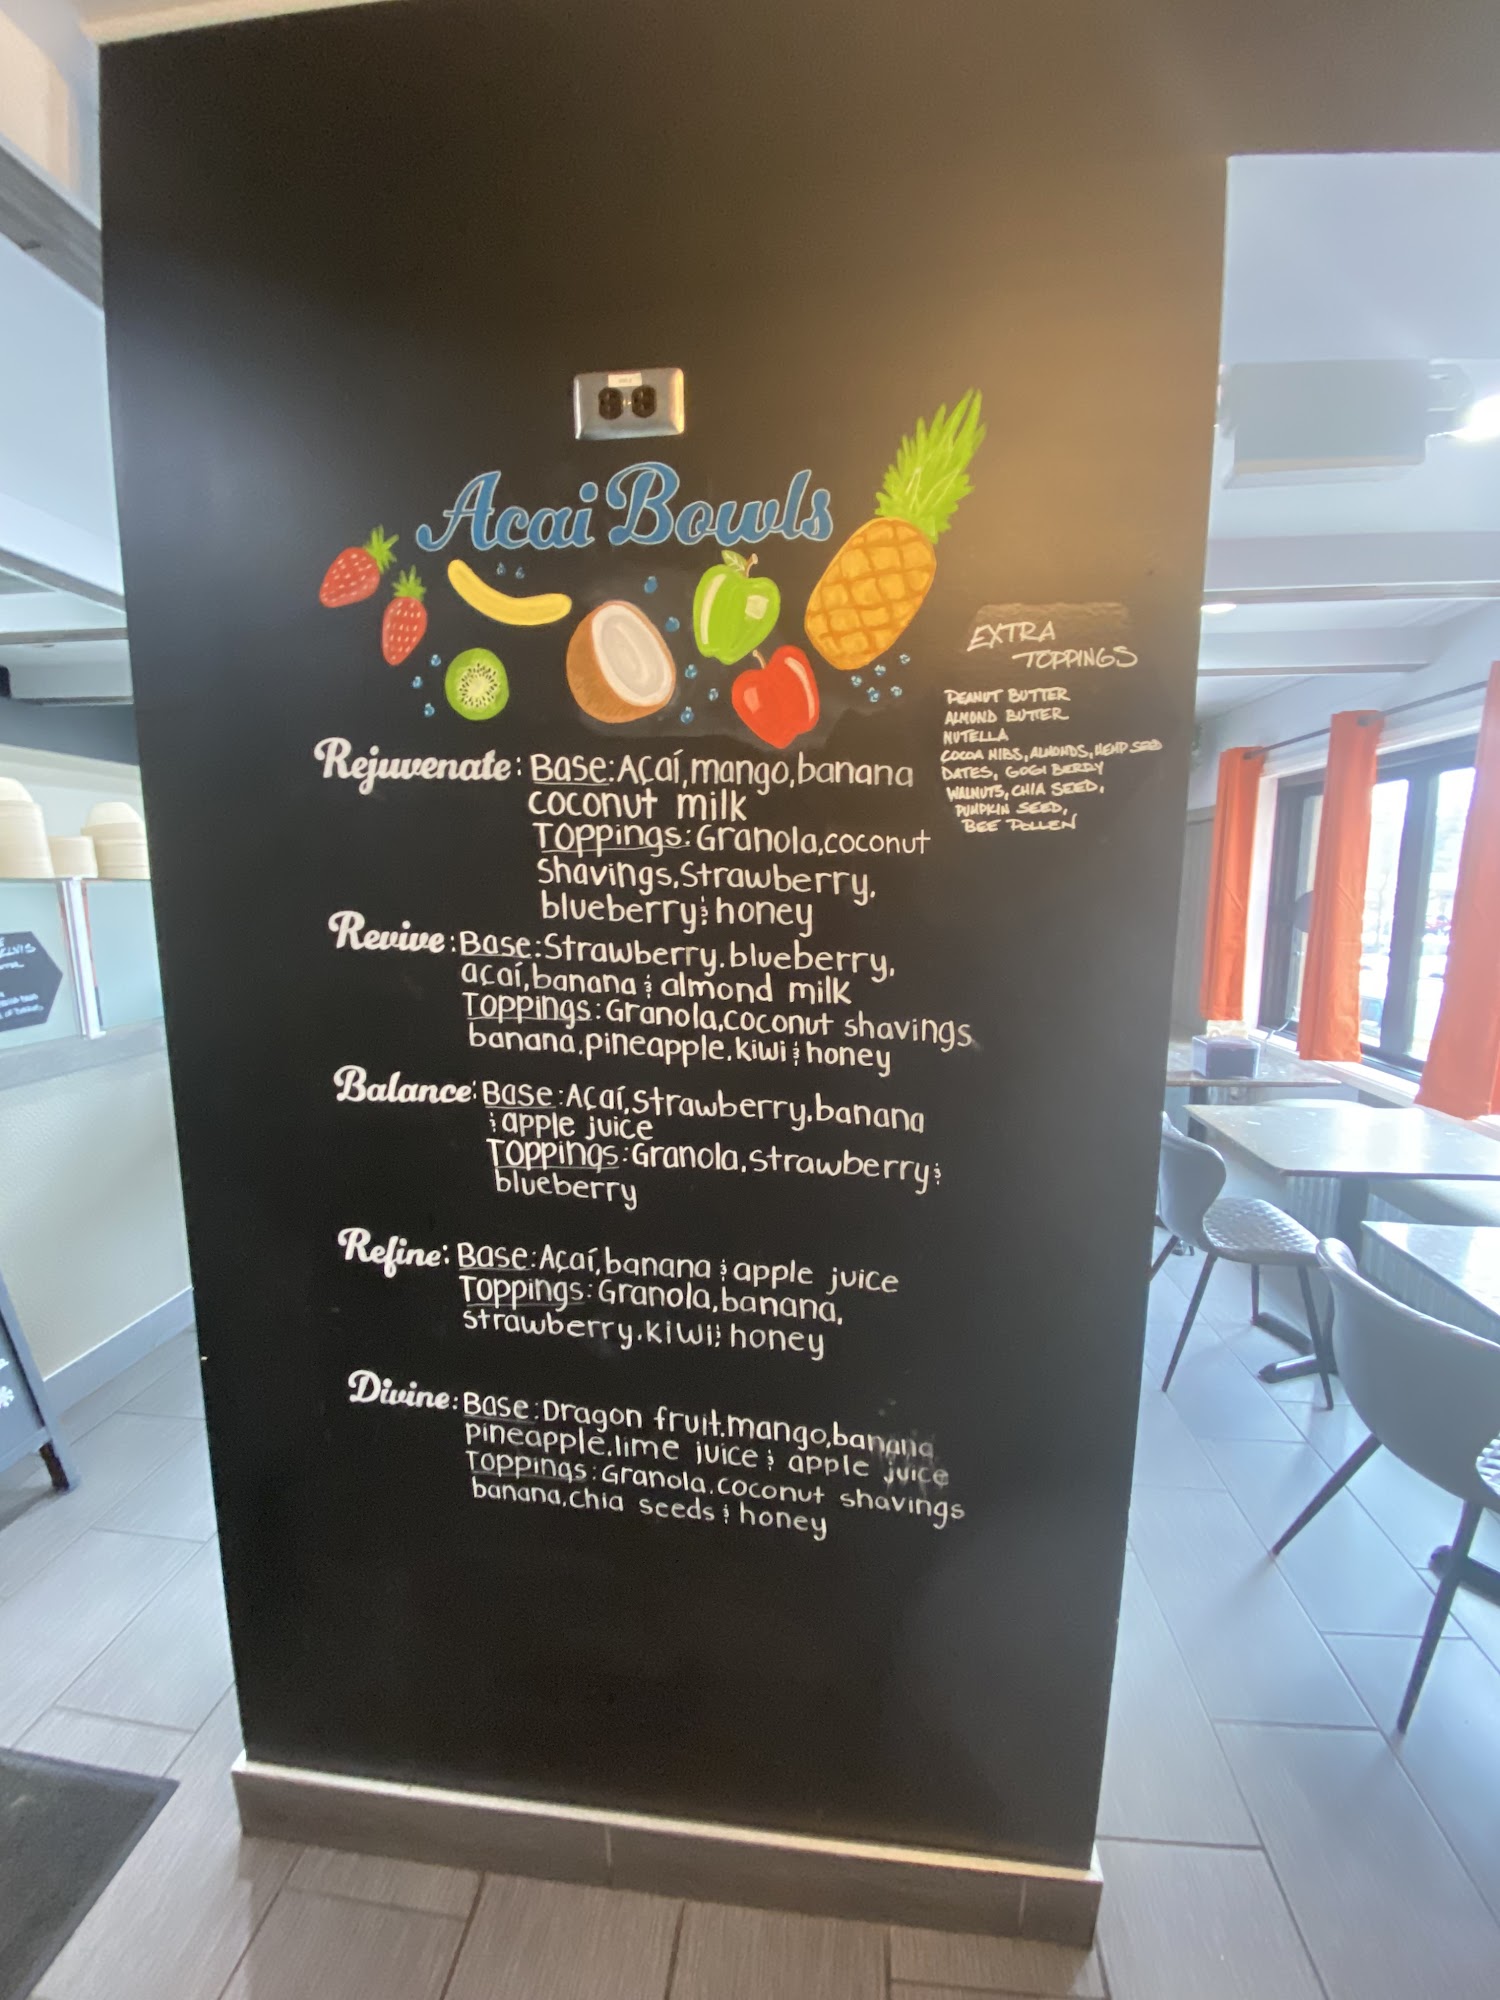 Acai Bowls
Rejuvenate: Base: Açaí, mango, banana
coconut milk
Toppings: Granola, coconut
Shavings, Strawberry,
blueberry & honey
Revive: Base: Strawberry, blueberry,
açaí, banana & almond milk
Toppings: Granola, coconut shavings
banana, pineapple, kiwi & honey
Balance: Base: Açaí, strawberry, banana
& apple juice
Toppings: Granola, strawberry &
blueberry
Refine: Base: Açaí, banana & apple juice
Toppings: Granola, banana,
strawberry, kiwi & honey
Divine: Base: Dragon fruit, mango, banana
pineapple, lime juice & apple juice
Toppings: Granola, coconut shavings
banana, chia seeds & honey
EXTRA
TOPPINGS
PEANUT BUTTER
ALMOND BUTTER
NUTELLA
COCOA NIBS, ALMONDS, HEMP SEED
DATES, GOGI BERRY
WALNUTS, CHIA SEED,
PUMPKIN SEED,
BEE POLLEN